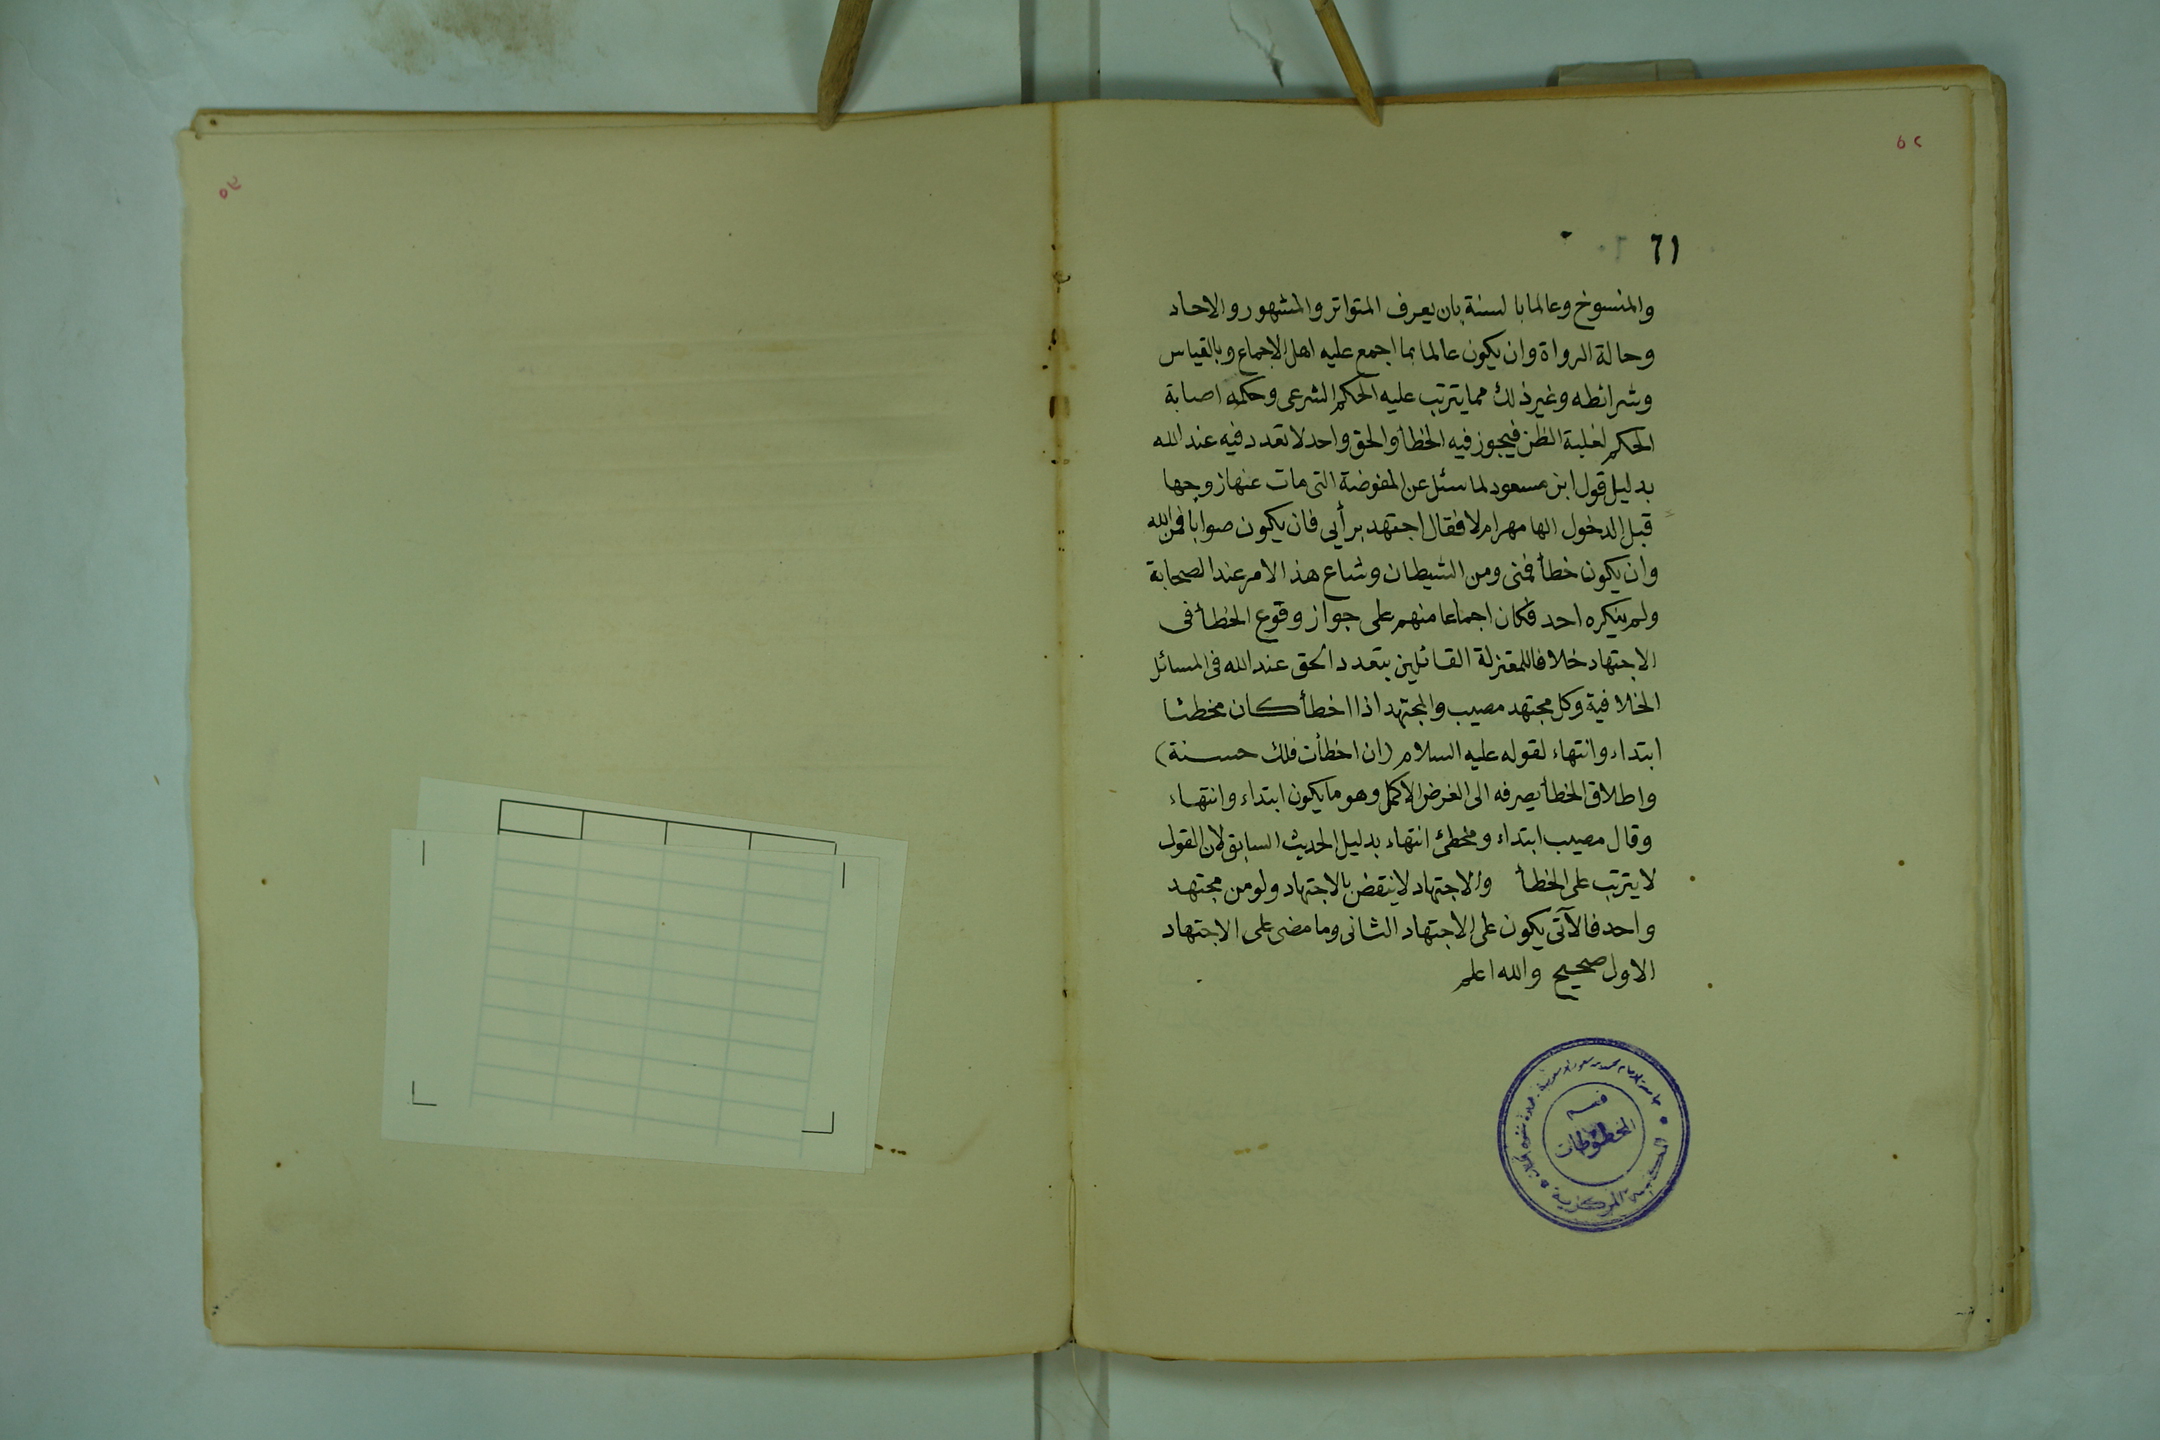 ٥٢
٦١
والمنسوخ وعالما بالسنة بان يعرف المتواتر والمشهور والاحاد
وحالة الرواة وان يكون عالما بما اجمع عليه اهل الاجماع وبالقياس
وشرائطه وغير ذلك مما يترتب عليه الحكم الشرعى وحكمه اصابة
الحكم لغلبة الظن فيجوز فيه الخطأ والحق واحد لا تعدد فيه عند الله
بدليل قول ابن مسعود لما سئل عن المفوضة التى مات عنها زوجها
قبل الدخول الها مهر ام لا فقال اجتهد برأيى فان يكون صوابا فمن الله
وان يكون خطأ فمنى ومن الشيطان وشاع هذا الامر عند الصحابة
ولم ينكره احد فكان اجماعا منهم على جواز وقوع الخطأ فى
الاجتهاد خلافا للمعتزلة القائلين بتعدد الحق عند الله فى المسائل
الخلافية وكل مجتهد مصيب والمجتهد اذا اخطأ كان مخطئا
ابتداء وانتهاء لقوله عليه السلام (ان اخطأت فلك حسنة)
واطلاق الخطأ يصرفه الى الغرض الاكمل وهو ما يكون ابتداء وانتهاء
وقال مصيب ابتداء ومخطئ انتهاء بدليل الحديث السابق لان القول
لا يترتب على الخطأ والاجتهاد لا ينتقض بالاجتهاد ولو من مجتهد
واحد فالآتى يكون على الاجتهاد الثانى وما مضى على الاجتهاد
الاول صحيح والله اعلم
جامعة الامام محمد بن سعود الاسلامية عمادة شئون المكتبات
قسم
المخطوطات
المكتبة المركزية